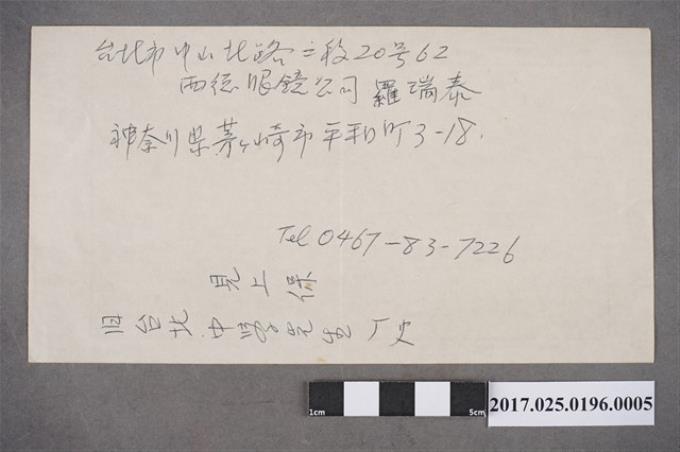 台北市中山北路二段20号62
西德眼鏡公司 羅瑞泰
神奈川県茅ヶ崎市平和町3-18.
Tel 0467-83-7226
見上 保
旧台北中学先生
1cm
5cm
2017.025.0196.0005